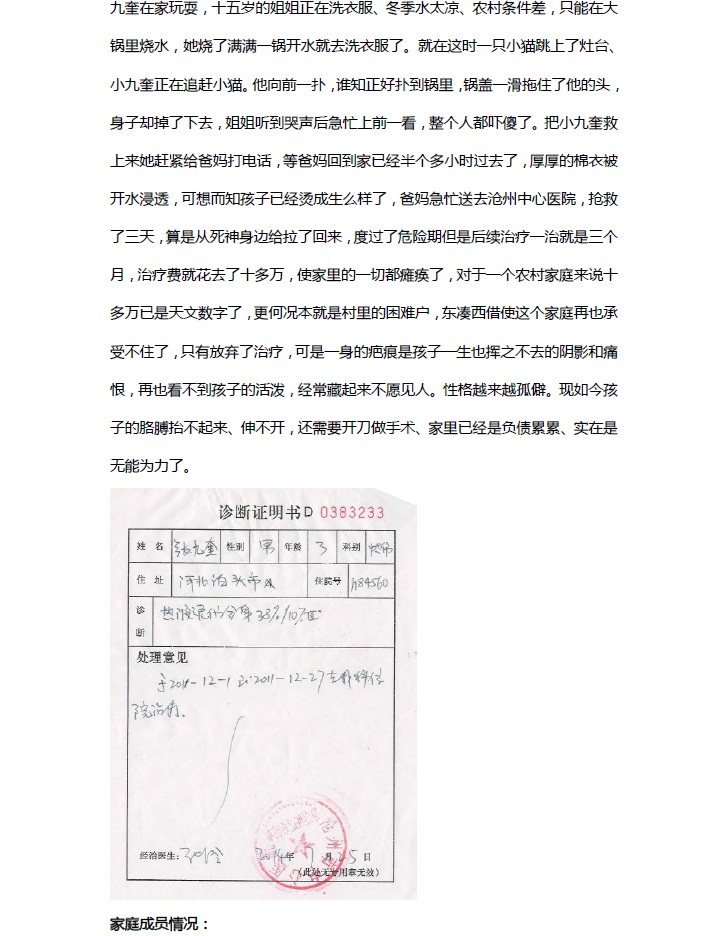 九奎在家玩耍，十五岁的姐姐正在洗衣服、冬季水太凉、农村条件差，只能在大
锅里烧水，她烧了满满一锅开水就去洗衣服了。就在这时一只小猫跳上了灶台、
小九奎正在追赶小猫。他向前一扑，谁知正好扑到锅里，锅盖一滑拖住了他的头，
身子却掉了下去，姐姐听到哭声后急忙上前一看，整个人都吓傻了。把小九奎救
上来她赶紧给爸妈打电话，等爸妈回到家已经半个多小时过去了，厚厚的棉衣被
开水浸透，可想而知孩子已经烫成生么样了，爸妈急忙送去沧州中心医院，抢救
了三天，算是从死神身边给拉了回来，度过了危险期但是后续治疗一治就是三个
月，治疗费就花去了十多万，使家里的一切都瘫痪了，对于一个农村家庭来说十
多万已是天文数字了，更何况本就是村里的困难户，东凑西借使这个家庭再也承
受不住了，只有放弃了治疗，可是一身的疤痕是孩子一生也挥之不去的阴影和痛
恨，再也看不到孩子的活泼，经常藏起来不愿见人。性格越来越孤僻。现如今孩
子的胳膊抬不起来、伸不开，还需要开刀做手术、家里已经是负债累累、实在是
无能为力了。
诊断证明书D 0383233
姓 名 张九奎 性别 男 年龄 3 科别 烧伤
住 址 河北泊头市 住院号 1184560
诊断 热液烫伤 33%
处理意见
于2011-12-1至2011-12-27在我科住
院治疗。
经治医生： 2014年7月25日
（此处无专用章无效）
家庭成员情况：